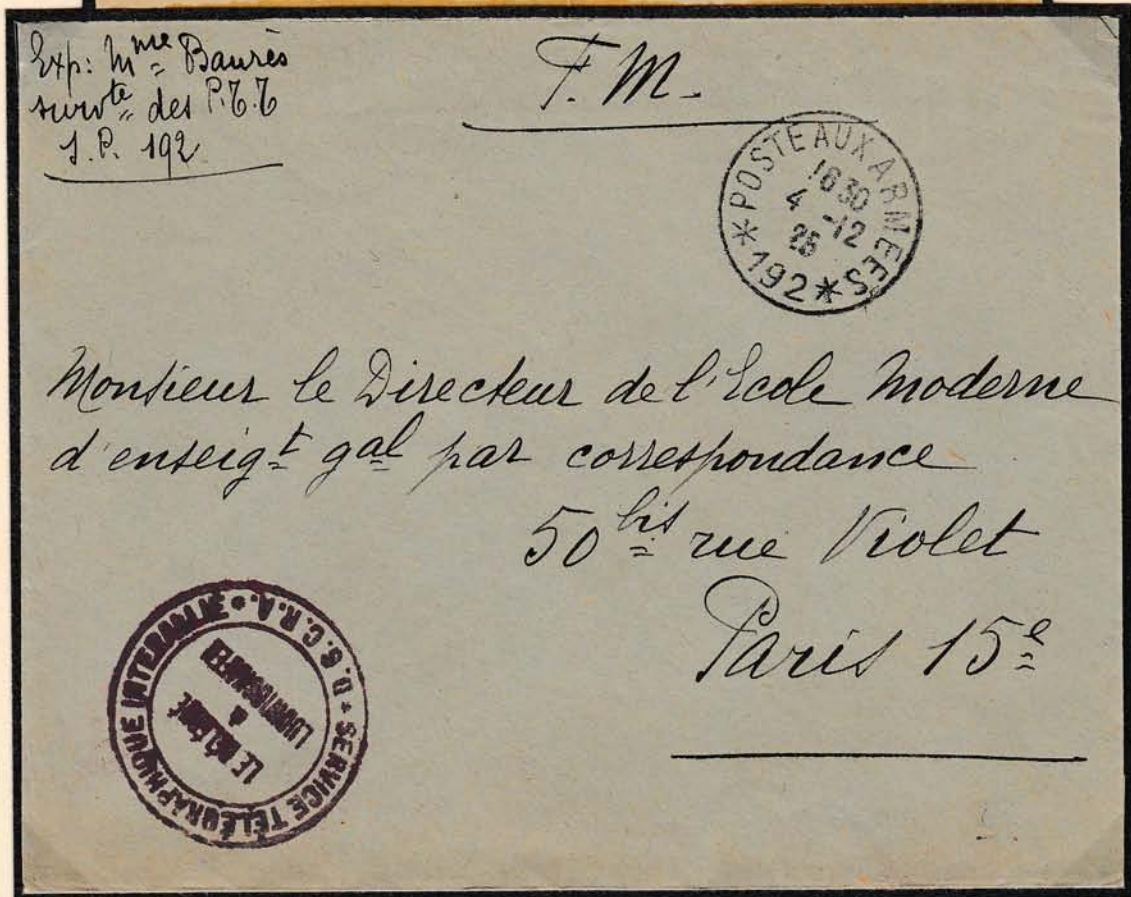 Exp: Mme Baurès
survte des P.T.T
S.P. 192
F.M.
POSTE AUX ARMEES
*192*
1630
4 -12
25
Monsieur le Directeur de l'Ecole Moderne
d'enseigt gal par correspondance
50 bis rue Violet
Paris 15e
* SERVICE TÉLÉGRAPHIQUE INTERALLIÉ * D.S.C.R.A.
LE DÉLÉGUÉ
à
LUDWIGSHAFEN